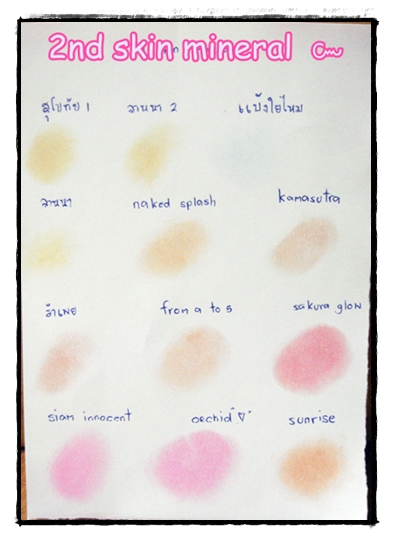 2nd skin mineral
สุโขทัย 1 ลานนา 2 แป้งใยไหม
ลานนา naked splash kamasutra
ลำเพย from a to s sakura glow
siam innocent orchid ♡ sunrise